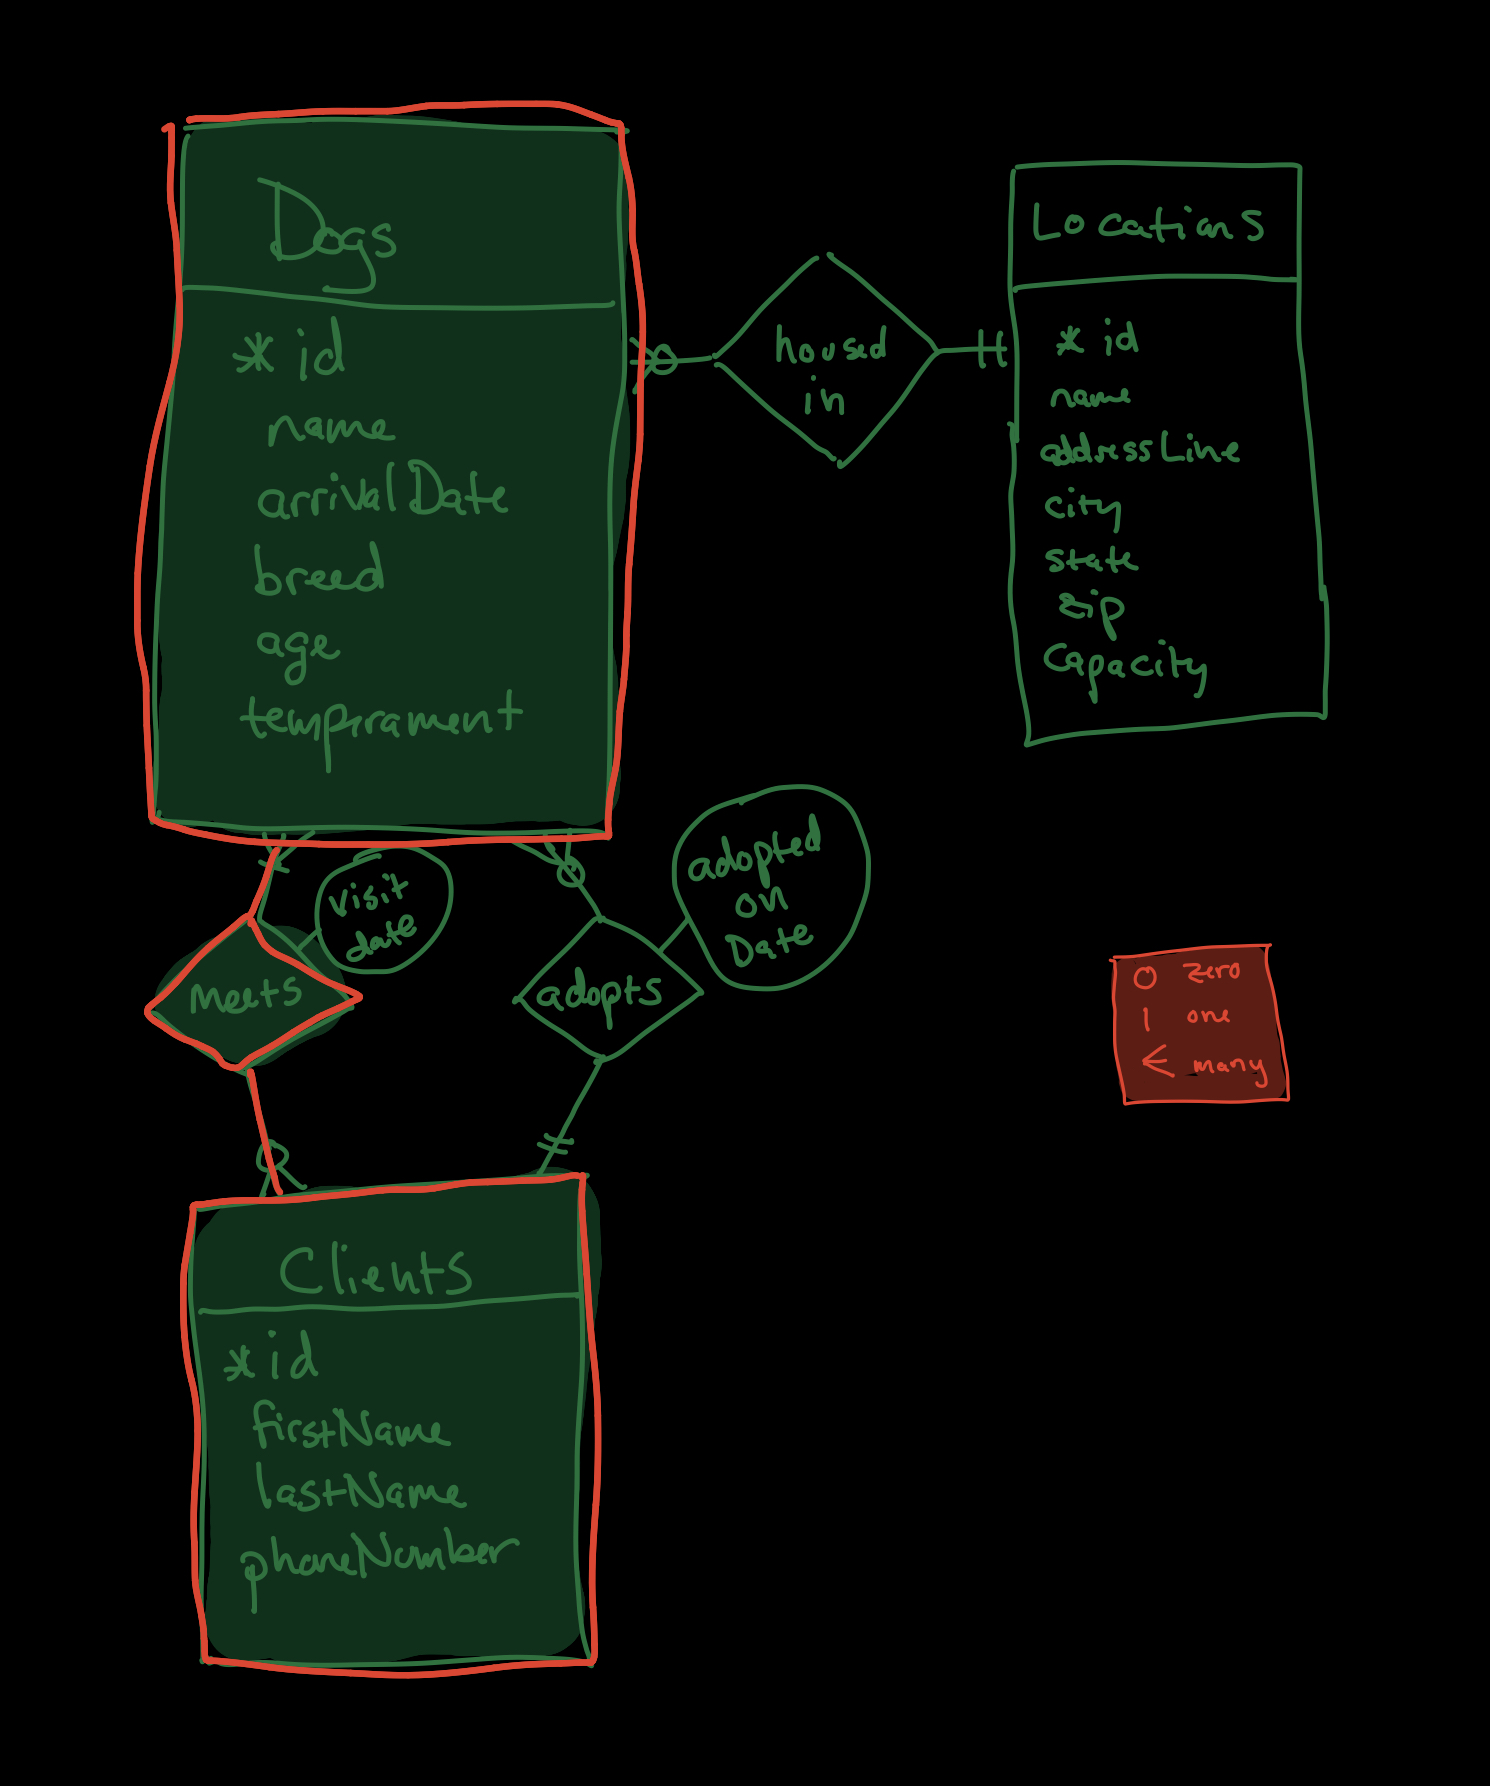 Dogs
* id
name
arrivalDate
breed
age
temprament
housed
in
Locations
* id
name
addressLine
city
state
zip
Capacity
visit
date
meets
adopted
on
Date
adopts
0 zero
1 one
< many
Clients
* id
firstName
lastName
phoneNumber